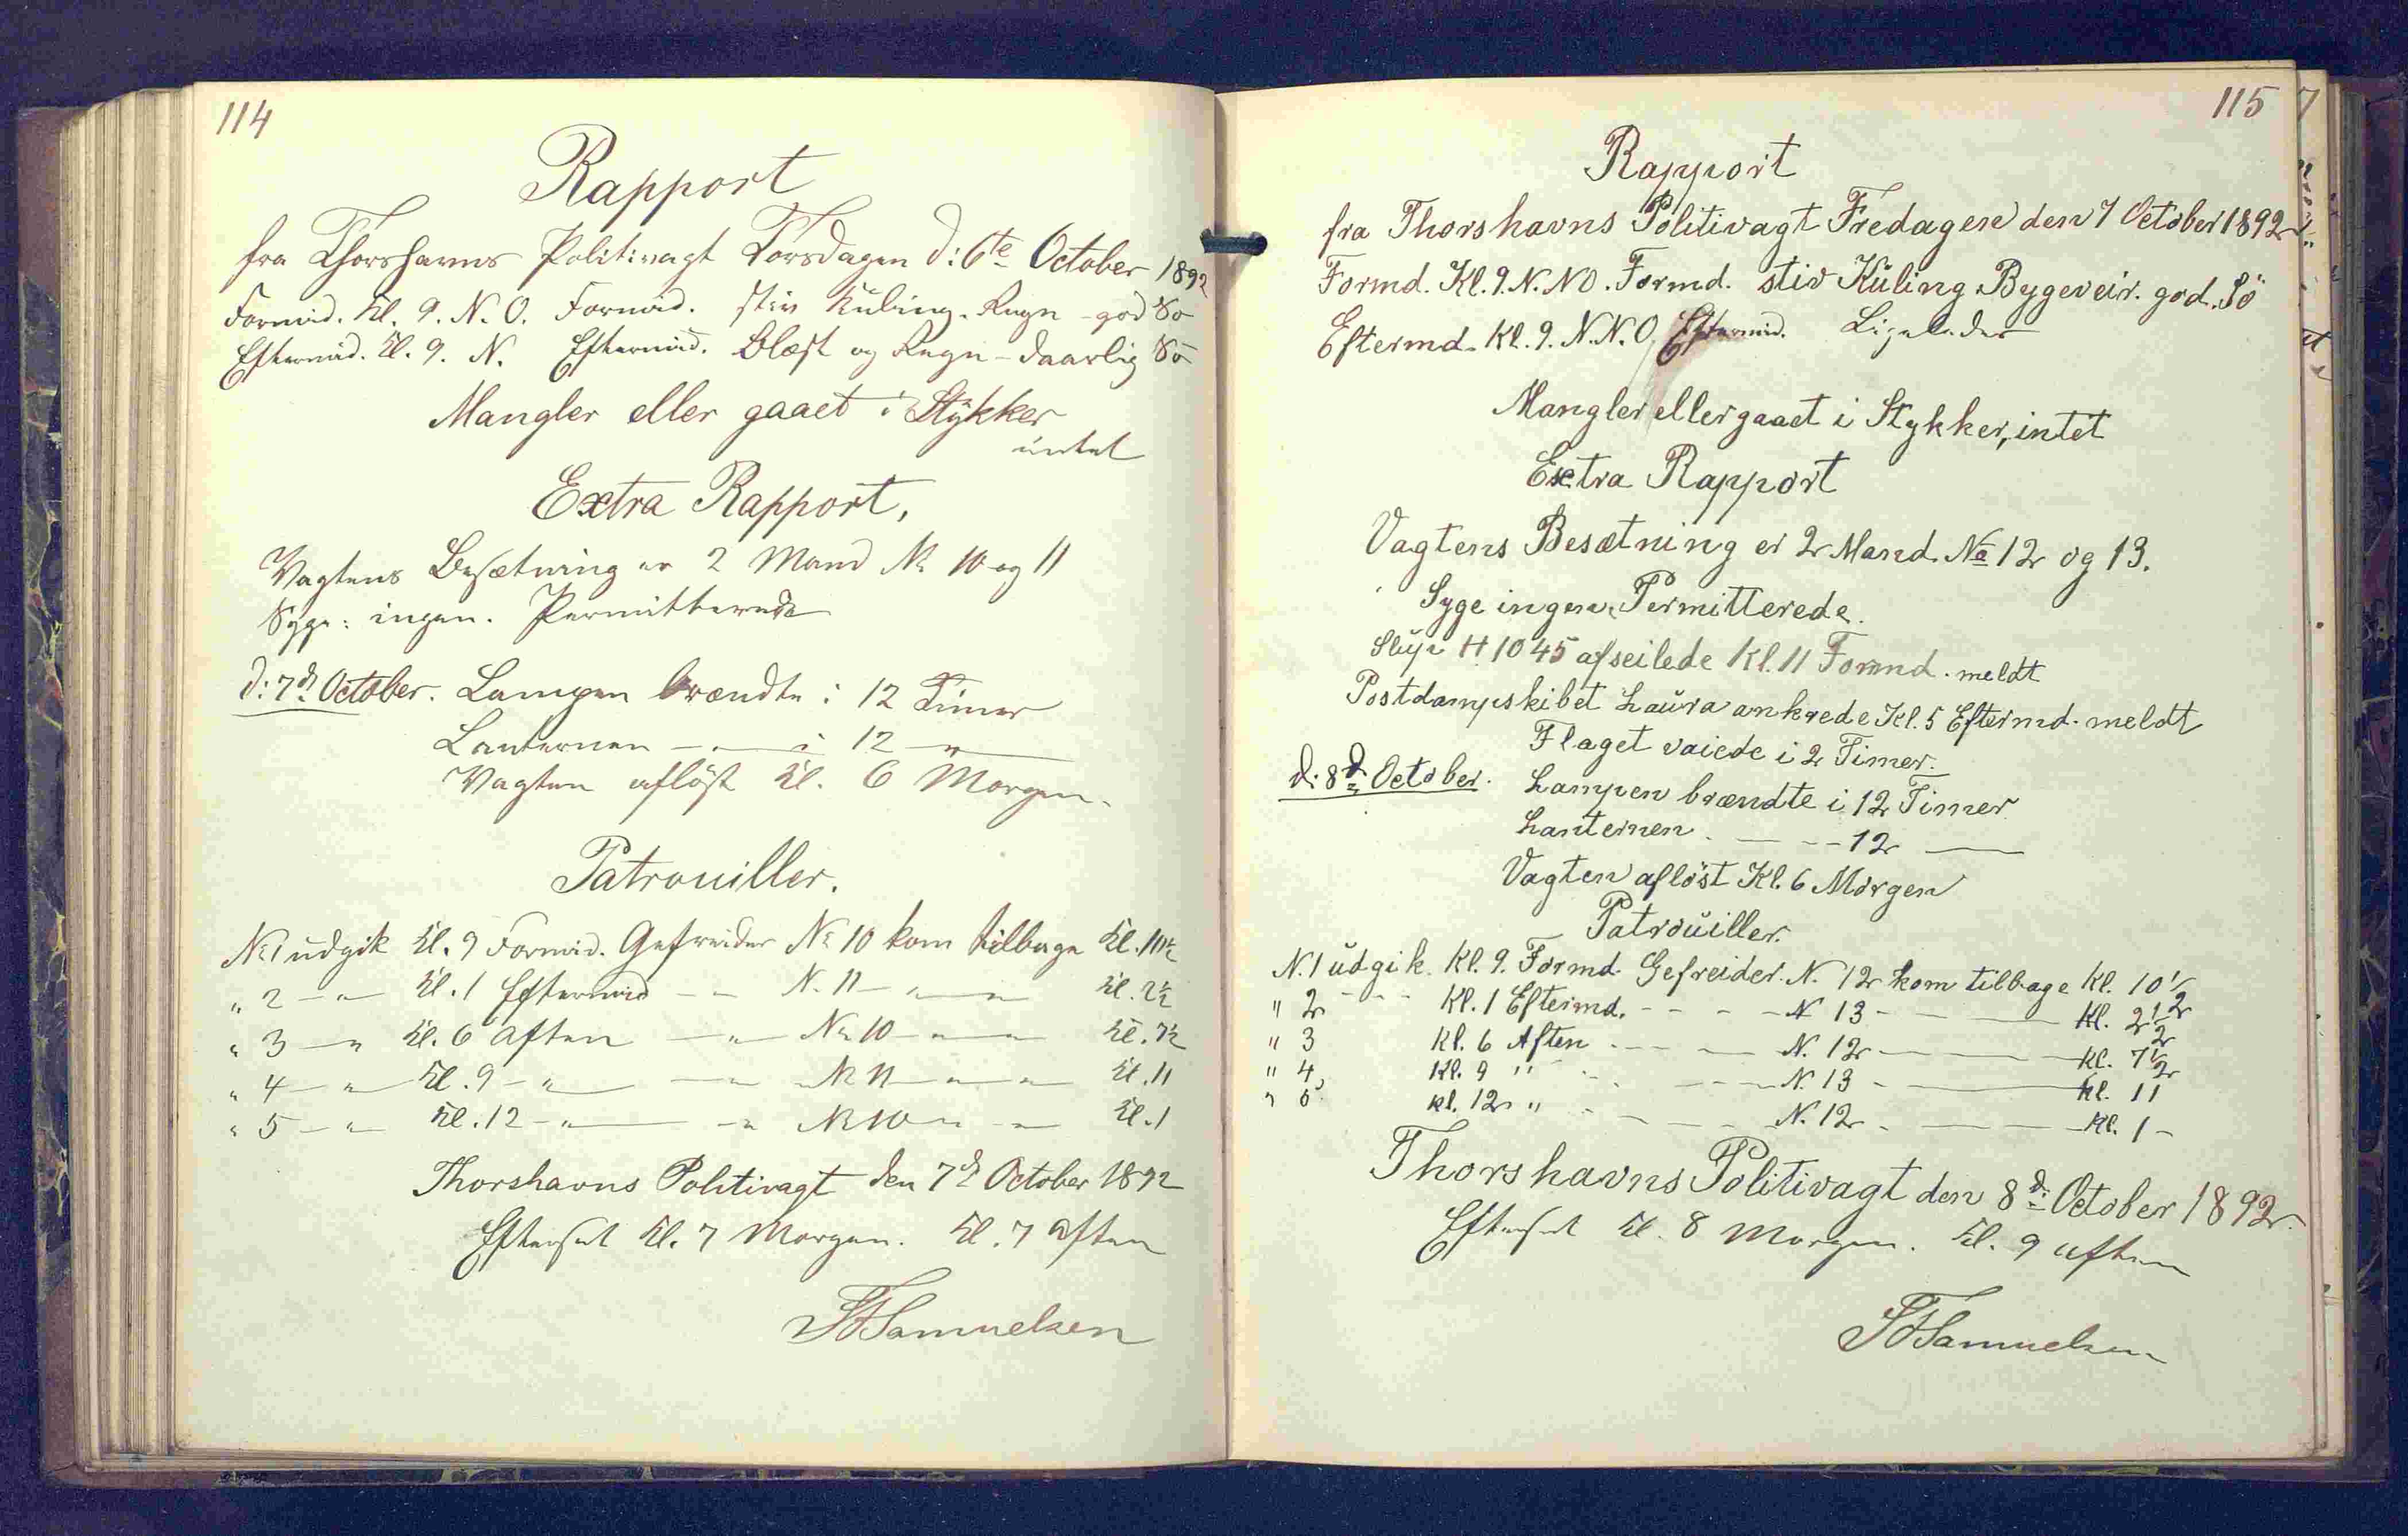 114
Rapport
fra Thorshavns Politivagt Torsdagen d: 6te October 1892
Formid. Kl. 9. N. O. Formid. stiv Kuling. Regn - god Sö
Eftermid. Kl. 9. N. Eftermid. Blæst og Regn - daarlig Sö
Mangler eller gaaet i Stykker
intet
Extra Rapport,
Vagtens Besætning er 2 Mand No 10 og 11
Syge: ingen. Permitterede
d: 7d October. Lampen brændte i 12 Timer
Lanternen — " — i 12 — " —
Vagten aflöst Kl. 6 Morgen.
Patrouiller.
No 1 udgik Kl. 9 Formid. Gefreider No 10 kom tilbage Kl. 10½
" 2 — " — Kl. 1 Eftermid — " — N. 11 — " — " — Kl. 2½
" 3 — " Kl. 6 Aften — " — No 10 — " — " — Kl. 7½
" 4 — " — Kl. 9 — " — — " — No 11 — " — " — Kl. 11
" 5 — " — Kl. 12 — " — — " No 10 — " — " — Kl. 1
Thorshavns Politivagt den 7d October 1892
Efterset Kl. 7 Morgen. Kl. 7 Aften
Samuelsen
115
Rapport
fra Thorshavns Politivagt Fredagen den 7 October 1892
Formd. Kl. 9. N. NO. Formd. stiv Kuling Bygeveir. god. Sö
Eftermd. Kl. 9. N. N. O. Eftermid. Ligeledes
Mangler eller gaaet i Stykker, intet
Extra Rapport
Vagtens Besætning er 2 Mand. No 12 og 13.
Syge ingen. Permitterede.
Slup H 1045 afseilede Kl. 11 Formd. meldt
Postdampskibet Laura ankrede Kl. 5 Eftermd. meldt
Flaget vaiede i 2 Timer.
d: 8d October. Lampen brændte i 12 Timer
Lanternen. — - - 12 —
Vagten aflöst Kl. 6 Morgen
Patrouiller.
N. 1 udgik. Kl. 9. Formd. Gefreider. N. 12 kom tilbage Kl. 10½
" 2 - - - Kl. 1 Eftermd. - - - - N 13 - — — Kl. 2½
" 3 Kl. 6 Aften - - — — N. 12 — — — Kl. 7½
" 4 Kl. 9 " - - — — N. 13 - — — Kl. 11
" 5 Kl. 12 " - — — — N. 12 - — — Kl. 1 -
Thorshavns Politivagt den 8d October 1892
Efterset Kl. 8 Morgen. Kl. 9 Aften
Samuelsen